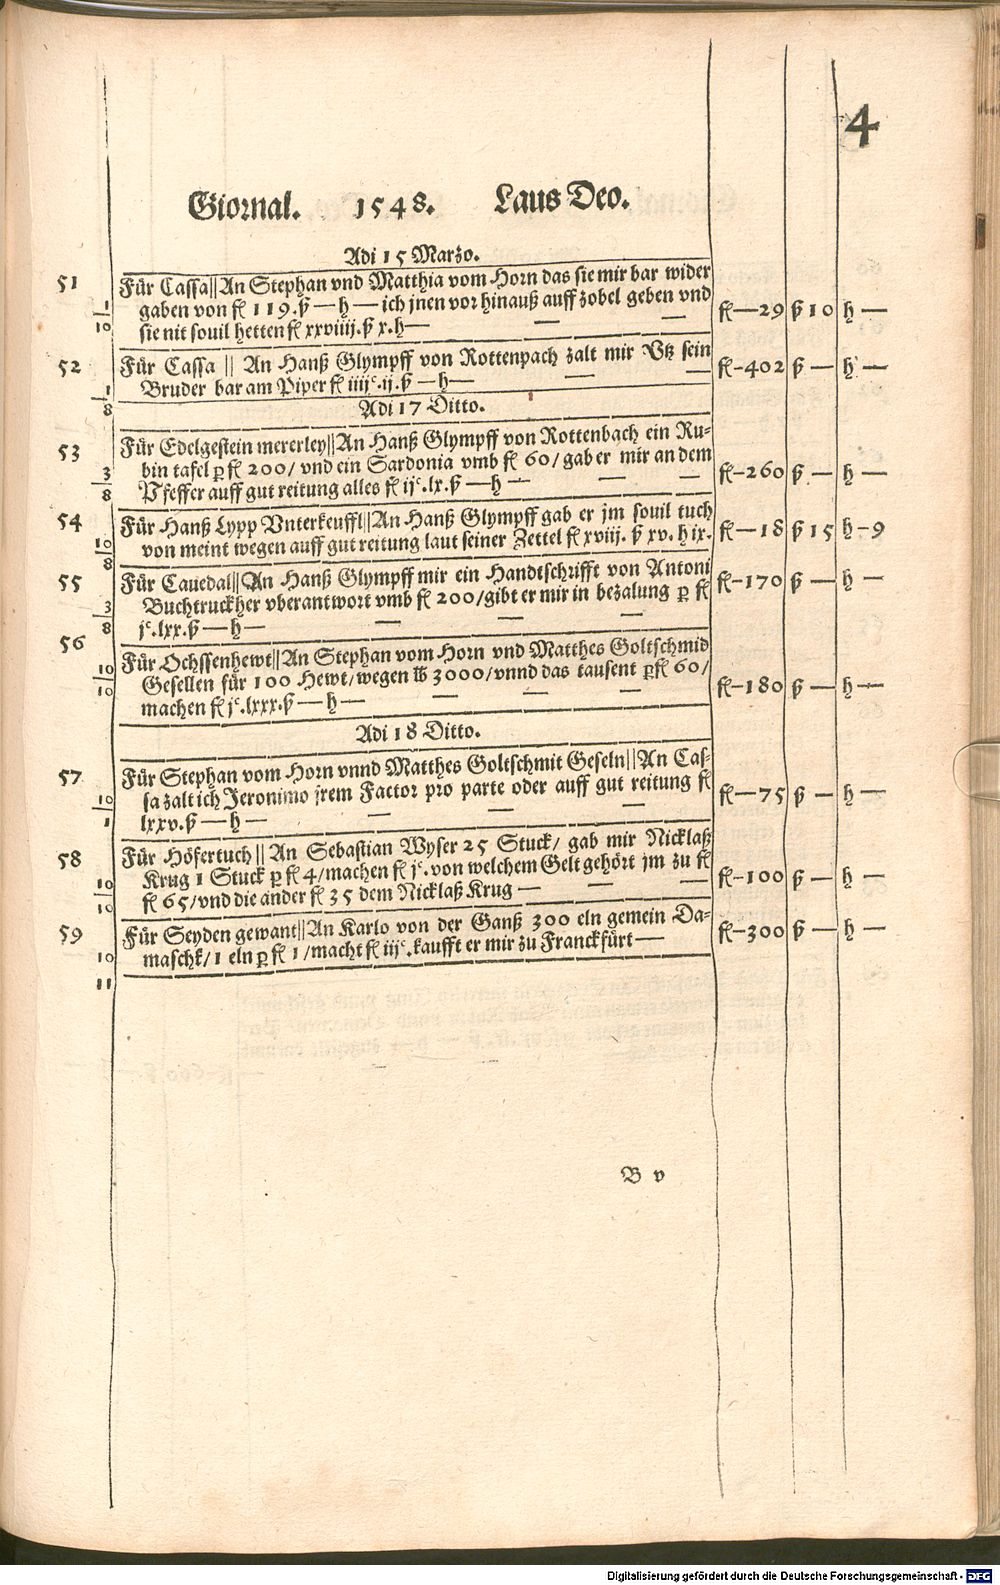 4
Giornal. 1548. Laus Deo.
Adi 15 Marzo.
51 Für Cassa||An Stephan vnd Matthia vom Horn das sie mir bar wider
1/10 gaben von fl 119.ß — h — ich jnen vor hinauß auff zobel geben vnd fl—29 ß 10 h —
sie nit souil hetten fl xxviiij.ß x.h— — —
52 Für Cassa || An Hanß Glympff von Rottenpach zalt mir Vtz sein fl-402 ß — h —
1/8 Bruder bar am Piper fl iiijc.ij.ß — h— — —
Adi 17 Ditto.
53 Für Edelgestein mererley||An Hanß Glympff von Rottenbach ein Ru-
3/8 bin tafel p fl 200/ vnd ein Sardonia vmb fl 60/ gab er mir an dem fl-260 ß — h —
Pfeffer auff gut reitung alles fl ijc.lx.ß — h — — —
54 Für Hanß Lypp Vnterkeuffl||An Hanß Glympff gab er jm souil tuch fl—18 ß 15 h-9
10/8 von meint wegen auff gut reitung laut seiner Zettel fl xviij. ß xv. h ix.
55 Für Cauedal||An Hanß Glympff mir ein Handtschrifft von Antoni fl-170 ß — h —
3/8 Buchtruckher vberantwort vmb fl 200/gibt er mir in bezalung p fl
jc.lxx.ß — h— — — —
56 Für Ochssenhewt||An Stephan vom Horn vnd Matthes Goltschmid
10/10 Gesellen für 100 Hewt/wegen lb 3000/vnnd das tausent p fl 60/ fl-180 ß — h —
machen fl jc.lxxx.ß — h — — — —
Adi 18 Ditto.
57 Für Stephan vom Horn vnnd Matthes Goltschmit Geseln||An Cas-
10/1 sa zalt ich Jeronimo jrem Factor pro parte oder auff gut reitung fl fl—75 ß — h —
lxxv.ß — h — — — —
58 Für Höfertuch|| An Sebastian Wyser 25 Stuck/ gab mir Nicklaß
10/10 Krug 1 Stuck p fl 4/machen fl jc.von welchem Gelt gehört jm zu fl fl-100 ß — h —
fl 65/vnd die ander fl 35 dem Nicklaß Krug — — —
59 Für Seyden gewant||An Karlo von der Ganß 300 eln gemein Da- fl-300 ß — h —
10/11 maschk/1 eln p fl 1/macht fl iijc.kaufft er mir zu Franckfürt—
B v
Digitalisierung gefördert durch die Deutsche Forschungsgemeinschaft - DFG